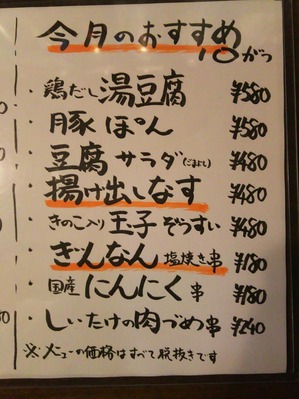 今月のおすすめ
10がつ
・鶏だし湯豆腐 ¥580
・豚ぽん ¥580
・豆腐サラダ(ごまよし) ¥480
・揚げ出しなす ¥480
・きのこ入り玉子ぞうすい ¥480
・ぎんなん塩焼き串 ¥180
・国産にんにく串 ¥180
・しいたけの肉づめ串 ¥240
※メニューの価格はすべて税抜きです